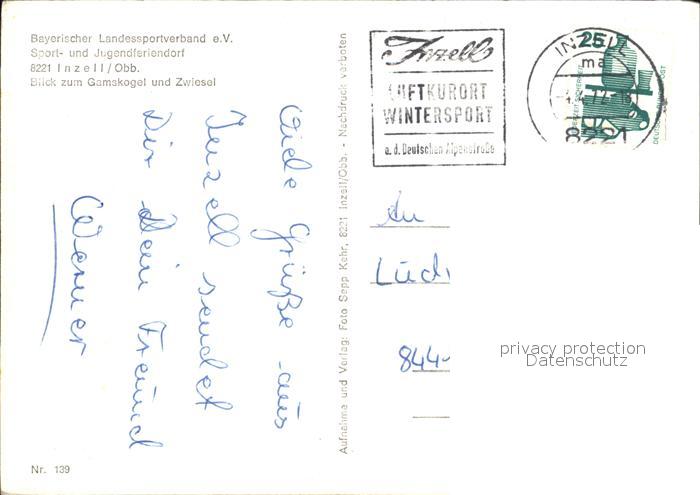 Bayerischer Landessportverband e.V.
Sport- und Jugendferiendorf
8221 Inzell/Obb.
Blick zum Gamskogel und Zwiesel
Viele Grüße aus
Inzell sendet
Dir Dein Freund
Werner
Nr. 139
Aufnahme und Verlag: Foto Sepp Kehr, 8221 Inzell/Obb. - Nachdruck verboten
Inzell
LUFTKURORT
WINTERSPORT
a.d. Deutschen Alpenstraße
INZELL
ma
8221
25
An
Ludi
844-
privacy protection
Datenschutz